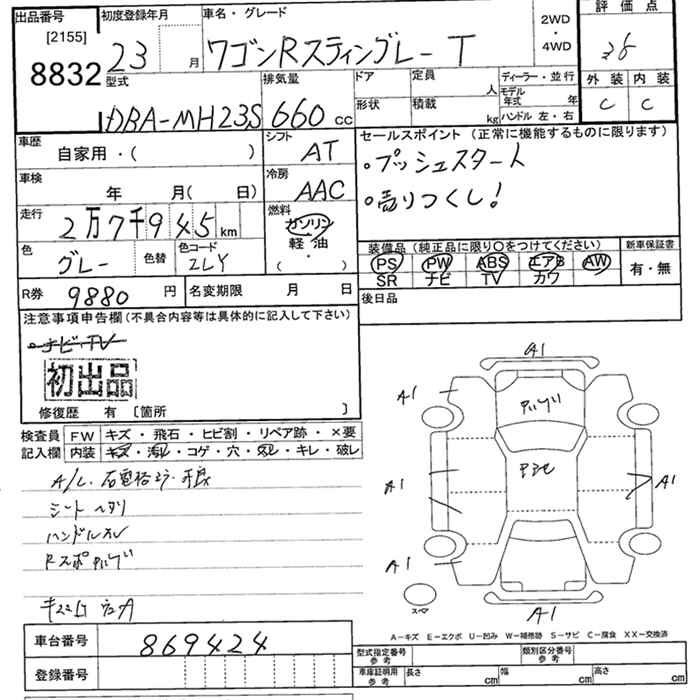 出品番号 初度登録年月 車名・グレード 2WD・4WD 評価点
[2155]
8832 23 月 ワゴンRスティングレー T
型式 排気量 ドア 定員 人 ディーラー・並行 外装 内装
DBA-MH23S 660 cc 形状 積載 kg モデル年式 年 ハンドル 左・右 C C
車歴 自家用・( ) シフト AT セールスポイント (正常に機能するものに限ります)
・プッシュスタート
車検 年 月( 日) 冷房 AAC ・売りつくし!
走行 2万7千945km 燃料 ガソリン 軽油 ( ・ )
色 グレー 色替 色コード ZLY
装備品 (純正品に限り○をつけてください) 新車保証書
PS PW ABS エアB AW 有・無
SR ナビ TV カワ
R券 9880 円 名変期限 月 日 後日品
注意事項申告欄(不具合内容等は具体的に記入して下さい)
ナビ・TV
初出品
修復歴 有 〔箇所 〕
検査員記入欄 FW キズ・飛石・ヒビ割・リペア跡・×要
内装 キズ・汚れ・コゲ・穴・スレ・キレ・破レ
シート ヘタリ
ハンドルスレ
A1
A1 A1
A1 A1
A1
A1
スペア
A-キズ E-エクボ U-凹み W-補修跡 S-サビ C-腐食 XX-交換済
車台番号 869424
登録番号
型式指定番号 参考 類別区分番号 参考
車庫証明用 参考 長さ cm 幅 cm 高さ cm